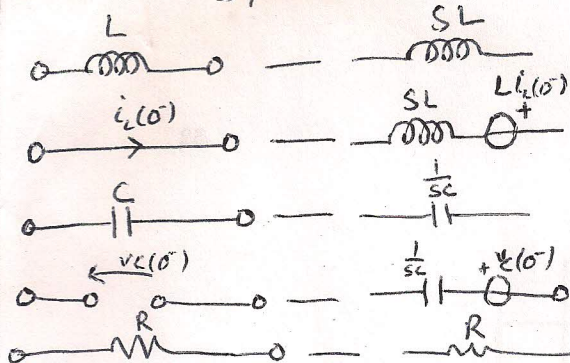 L SL
i_L(0⁻) SL L i_L(0⁻)
+
C 1/SC
v_C(0⁻) 1/SC + v_C(0⁻)
R R